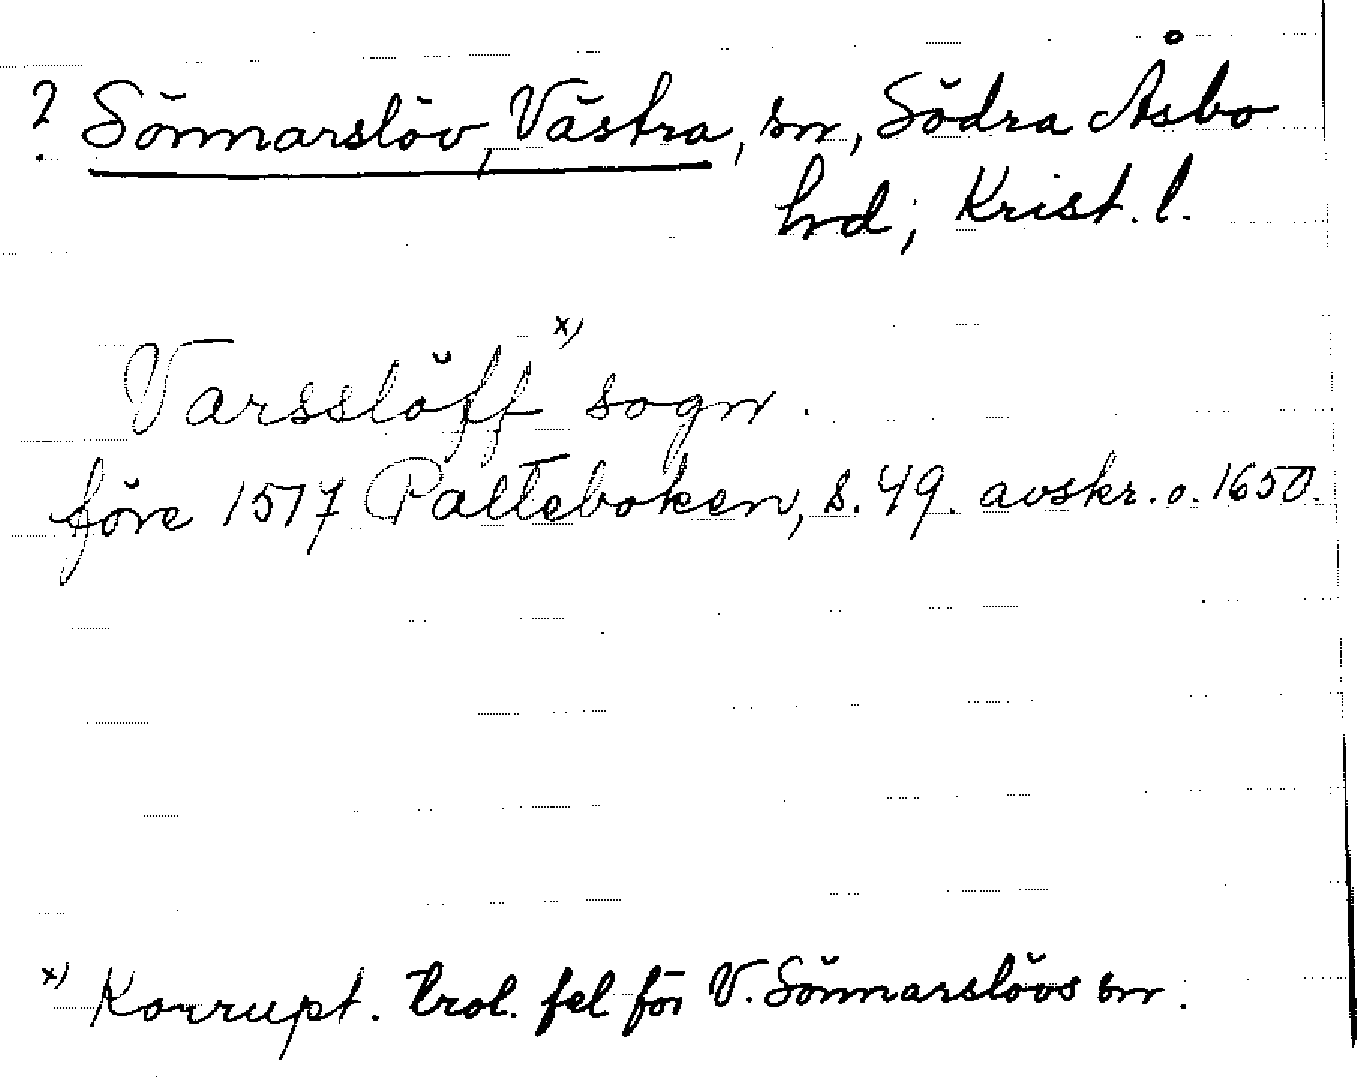 ? Sönnarslöv, Västra, sn, Södra Åsbo
hd; Krist. l.
Varsslöff x) sogn.
före 1517 Palteboken, s. 49. avskr. o. 1650.
x) Korrupt. trol. fel för V. Sönnarslövs sn.